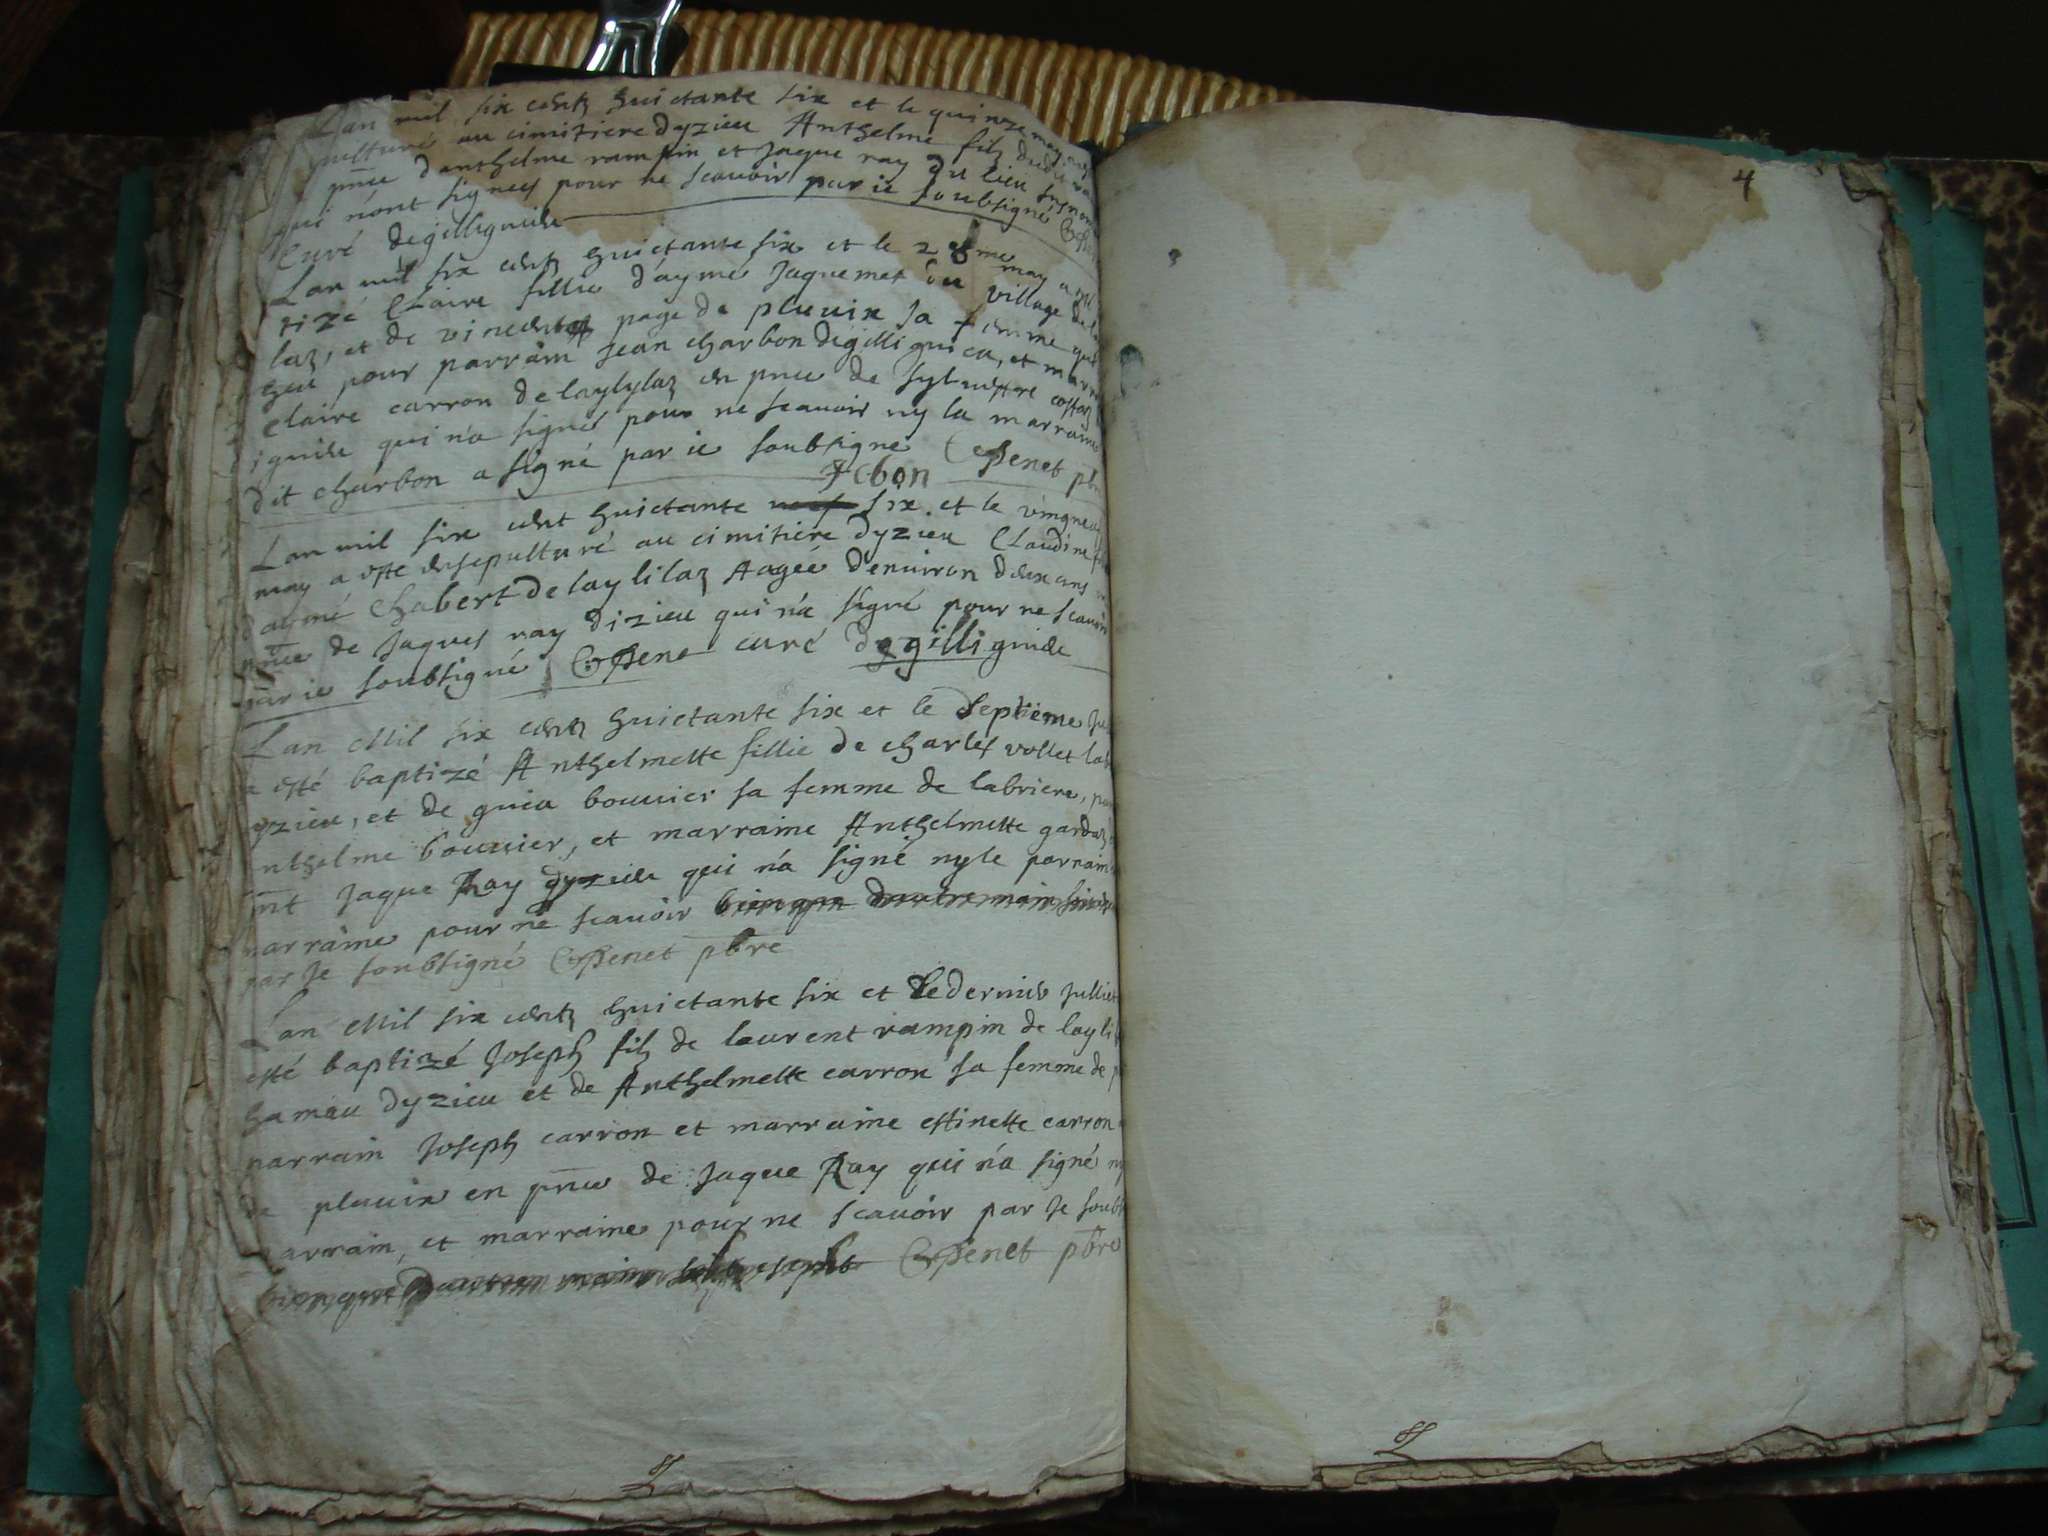 Lan mil six centz huictante six et le quinze may
pulturé au cimitiere dyzieu Anthelme filz
pnce danthelme rampin et Jaque ray du lieu
qui nont signes pour ne scavoir par ie soubsigné
Curé degillignieu
Lan mil six centz huictante six et le 28me may a
tizé Claire fillie dayme Jaquemet du village de
laz, et de page de pluvix sa femme
heu pour parrain Jean charbon degillignieu, et
Claire carron de laylylaz en pnce de sylvestre costaz
ignieu qui na signé pour ne scavoir ny la marraine
dit charbon a signé par ie soubsigne Cossenet pbre
chon
Lan mil six cent huictante six et le
may a esté ensepulturé au cimitiere dyzieu Claudine
daymé Chabert de laylilaz Aagée denviron deux ans
pnce de Jaques ray dizieu qui na signé pour ne scavoir
par ie soubsigné Cossenet curé degillignieu
Lan Mil six centz huictante six et le septieme
a esté baptizé Anthelmette fillie de charles vollet
yzieu, et de bouvier sa femme de labriere,
nthelme bouvier, et marraine Anthelmette
Jaque Ray dyzieu qui na signé ny le parrain
marraine pour ne scavoir
par Je soubsigné Cossenet pbre
Lan Mil six centz huictante six et le dernier Julliet
esté baptizé Joseph filz de laurent rampin de
hameau dyzieu et de Anthelmette carron sa femme de
parrain Joseph carron et marraine estinette carron
de pluvix en pnce de Jaque Ray qui na signé ny
parrain, et marraine pour ne scavoir par Je
Cossenet pbre
4